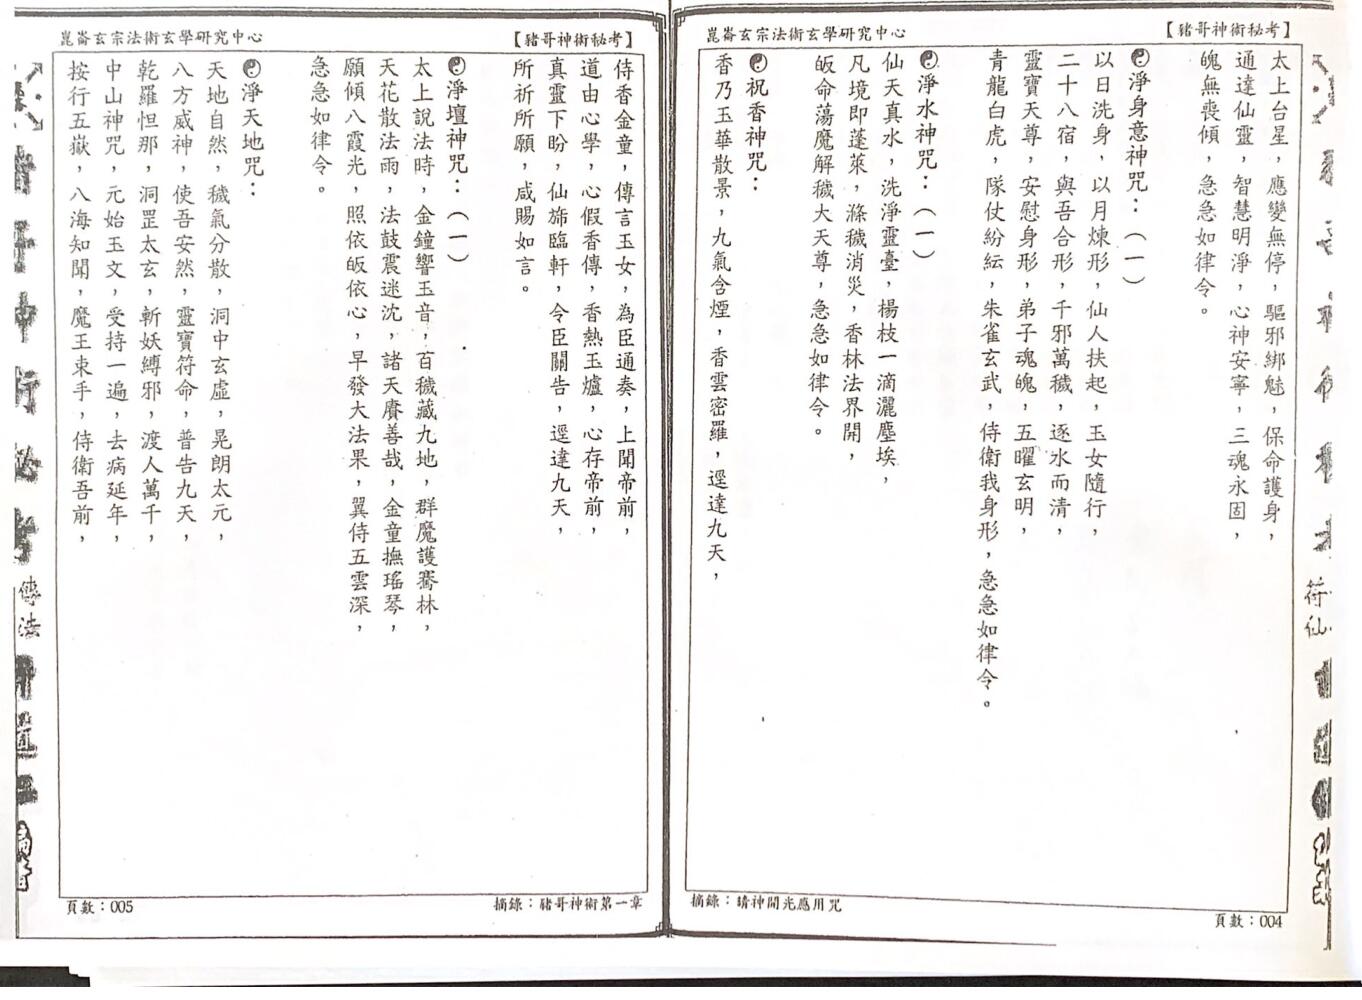 崑崙玄宗法術玄學研究中心
【豬哥神術秘考】
太上台星，應變無停，驅邪綁魅，保命護身，
通達仙靈，智慧明淨，心神安寧，三魂永固，
魄無喪傾，急急如律令。
淨身意神咒：（一）
以日洗身，以月煉形，仙人扶起，玉女隨行，
二十八宿，與吾合形，千邪萬穢，逐水而清，
靈寶天尊，安慰身形，弟子魂魄，五曜玄明，
青龍白虎，隊仗紛紜，朱雀玄武，侍衛我身形，急急如律令。
淨水神咒：（一）
仙天真水，洗淨靈臺，楊枝一滴灑塵埃，
凡境即蓬萊，滌穢消災，香林法界開，
皈命蕩魔解穢大天尊，急急如律令。
祝香神咒：
香乃玉華散景，九氣含煙，香雲密羅，逕達九天，
摘錄：請神開光應用咒
頁數：004
崑崙玄宗法術玄學研究中心
【豬哥神術秘考】
侍香金童，傳言玉女，為臣通奏，上聞帝前，
道由心學，心假香傳，香熱玉爐，心存帝前，
真靈下盼，仙旆臨軒，令臣關告，逕達九天，
所祈所願，咸賜如言。
淨壇神咒：（一）
太上說法時，金鐘響玉音，百穢藏九地，群魔護騫林，
天花散法雨，法鼓震迷沈，諸天賡善哉，金童撫瑤琴，
願傾八霞光，照依皈依心，早發大法果，翼侍五雲深，
急急如律令。
淨天地咒：
天地自然，穢氣分散，洞中玄虛，晃朗太元，
八方威神，使吾安然，靈寶符命，普告九天，
乾羅怛那，洞罡太玄，斬妖縛邪，渡人萬千，
中山神咒，元始玉文，受持一遍，去病延年，
按行五嶽，八海知聞，魔王束手，侍衛吾前，
摘錄：豬哥神術第一章
頁數：005
傳法
符仙